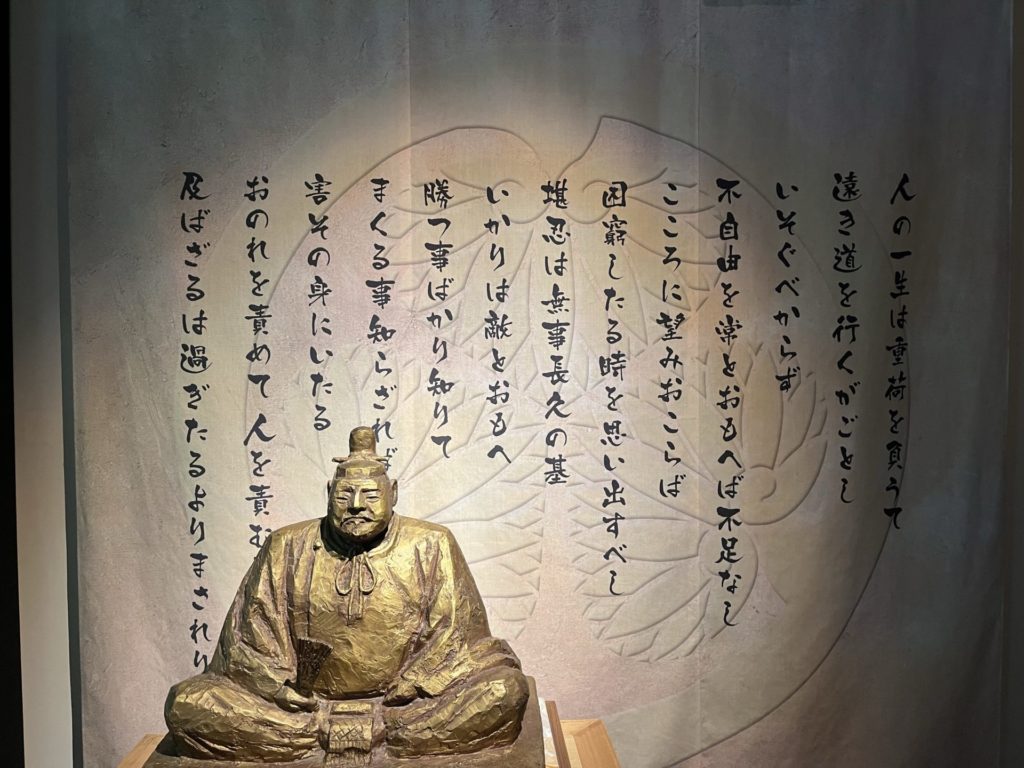 人の一生は重荷を負うて
遠き道を行くがごとし
いそぐべからず
不自由を常とおもへば不足なし
こころに望みおこらば
困窮したる時を思い出すべし
堪忍は無事長久の基
いかりは敵とおもへ
勝つ事ばかり知りて
まくる事知らざれば
害その身にいたる
おのれを責めて人を責む
及ばざるは過ぎたるよりまされり